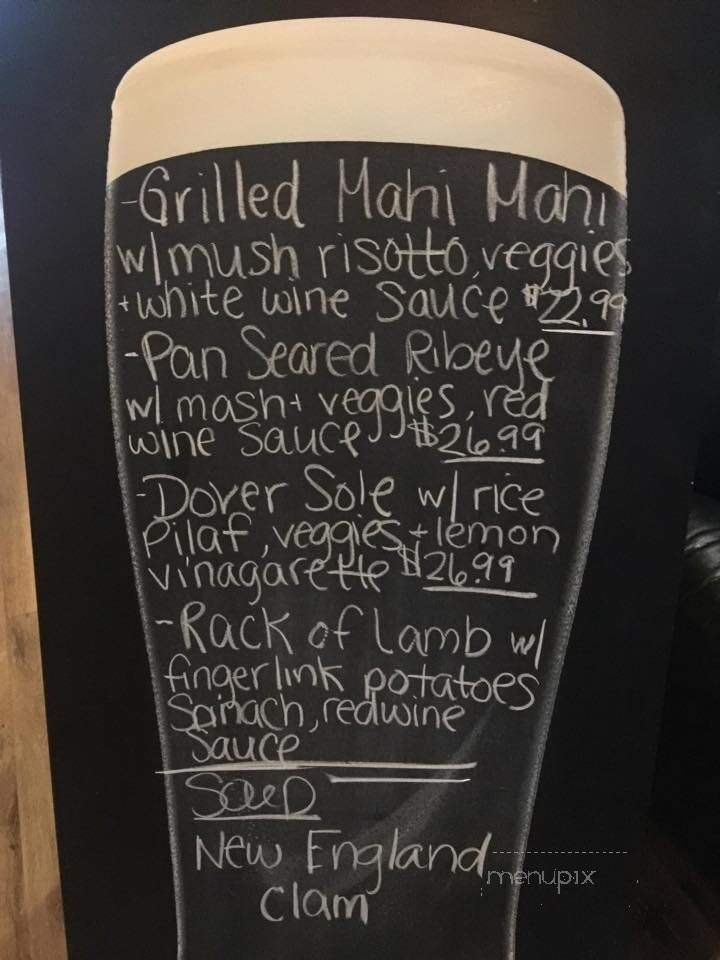 -Grilled Mahi Mahi
w/ mush risotto, veggies
+ white wine sauce $22.99
-Pan Seared Ribeye
w/ mash + veggies, red
wine sauce $26.99
-Dover Sole w/ rice
pilaf, veggies + lemon
vinagarette $26.99
-Rack of Lamb w/
fingerlink potatoes
Spinach, redwine
Sauce
Soup
New England
Clam
menupix